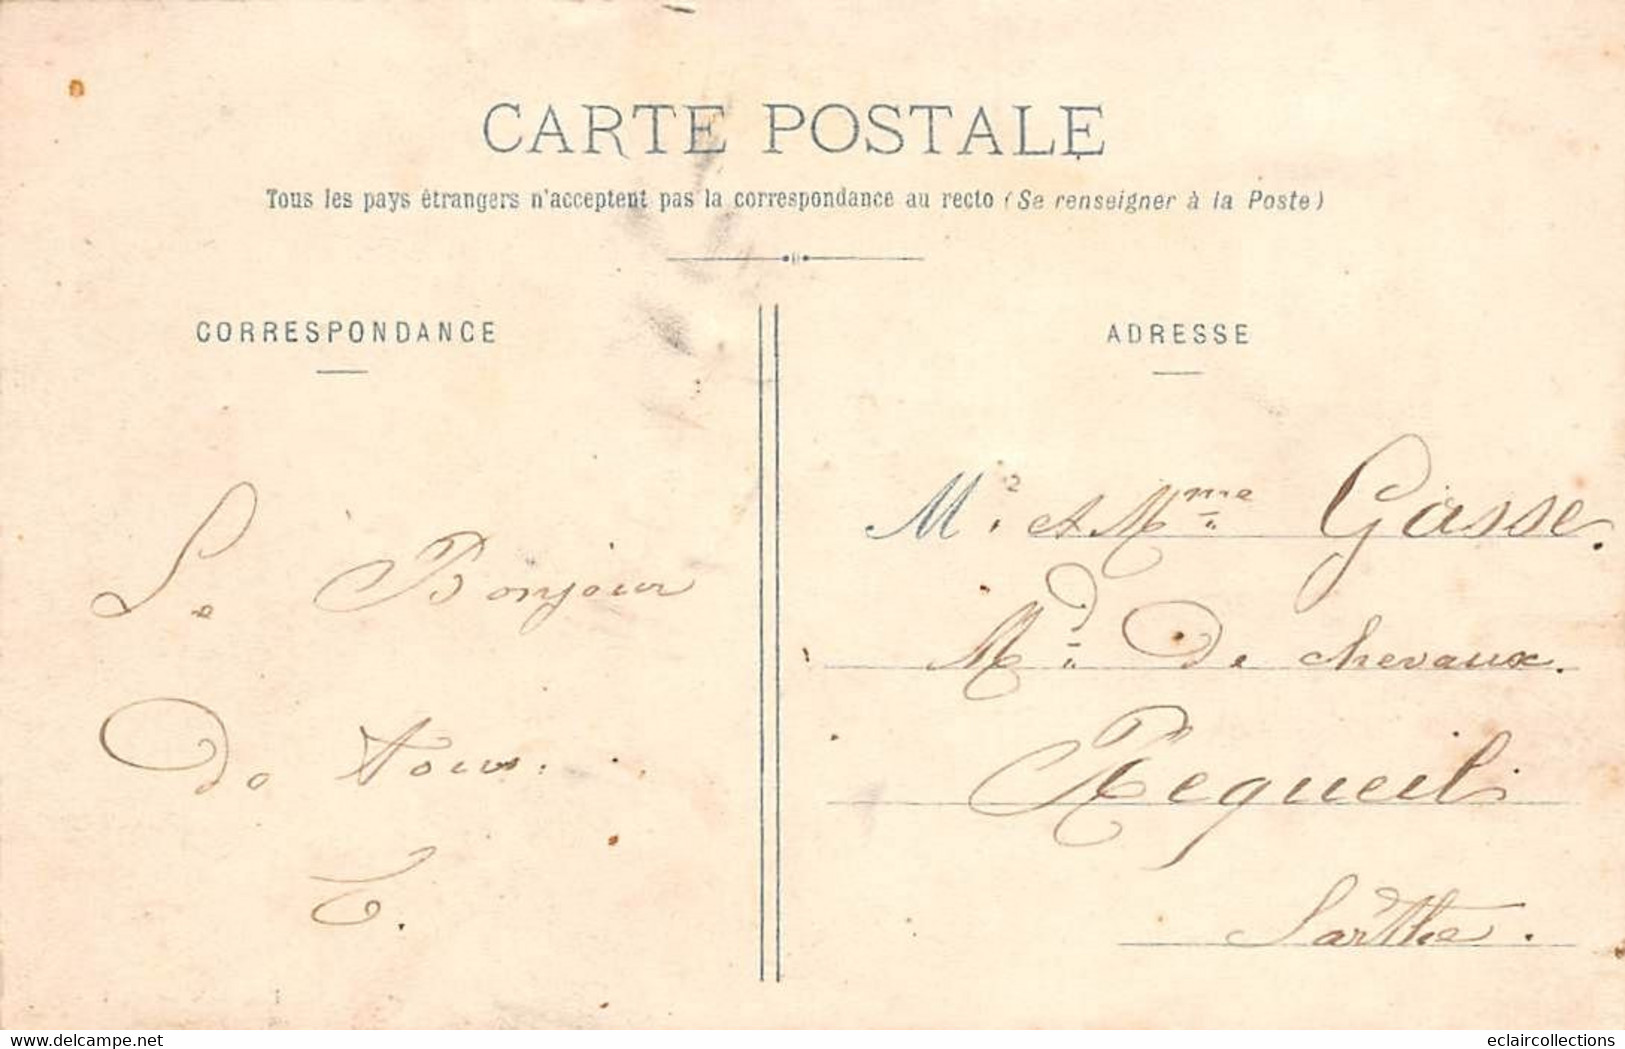 CARTE POSTALE
Tous les pays étrangers n'acceptent pas la correspondance au recto (Se renseigner à la Poste)
CORRESPONDANCE
ADRESSE
Le Bonjour
De tous.
T.
Mr. et Mme Gasse.
Md. De chevaux.
Requeil.
Sarthe.
www.delcampe.net
eclaircollections